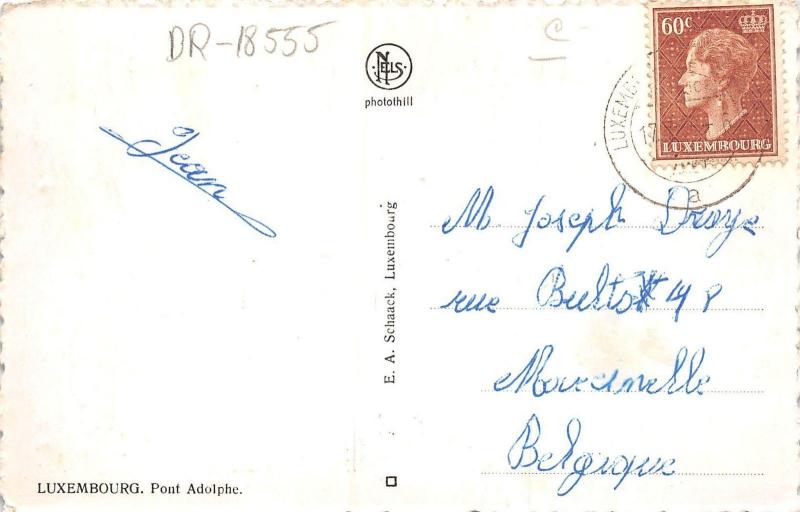 DR-18555
C-
NELS
photothill
60c
LUXEMBOURG
LUXEMB
17
a
Jean
E. A. Schaack, Luxembourg
M. Joseph
rue 148
Marcinelle
Belgique
LUXEMBOURG. Pont Adolphe.